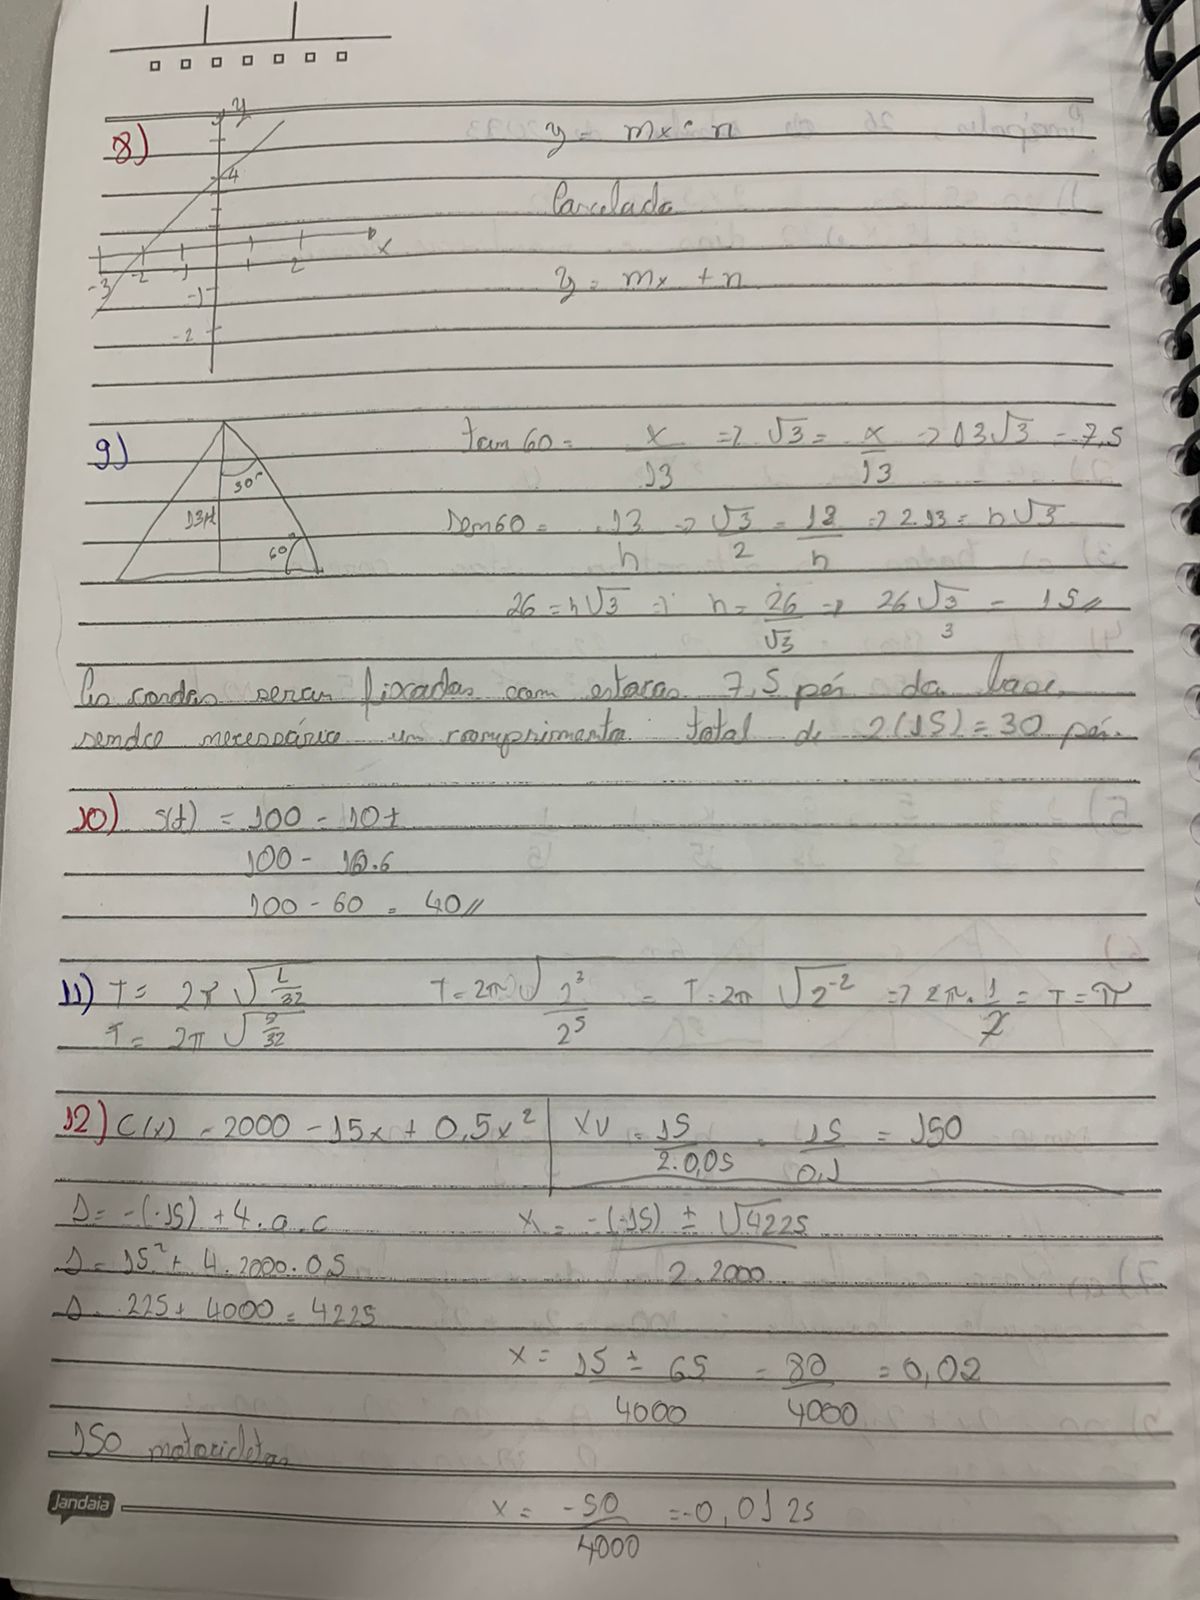 8)
y
4
-3 -2 -1 2 x
-1
-2
y = mx + n
Cancelada
y = mx + n
9)
30°
13ft
60°
tan 60 = x/13 => √3 = x/13 => 13√3 = 7,5
sen60 = 13/h => √3/2 = 13/h => 2.13 = h√3
26 = h√3 => h = 26/√3 => 26√3/3 = 15//
As cordas seram fixadas com estacas 7,5 pés da base,
sendo necessário um comprimento total de 2(15) = 30 pés.
10) s(t) = 100 - 10t
100 - 10.6
100 - 60 = 40//
11) T = 2π √L/32 T = 2π √2³/2⁵ = T = 2π √2⁻² => 2π.1/2 = T = π
T = 2π √8/32
12) C(x) = 2000 - 15x + 0,5x² XV = 15/2.0,05 = 15/0,1 = 150
Δ = -(-15) + 4.a.c x = -(-15) ± √4225/2.2000
Δ = 15² + 4.2000.0,5
Δ = 225 + 4000 = 4225
x = 15 ± 65/4000 = 80/4000 = 0,02
150 motocicletas
x = -50/4000 = -0,0125
Jandaia